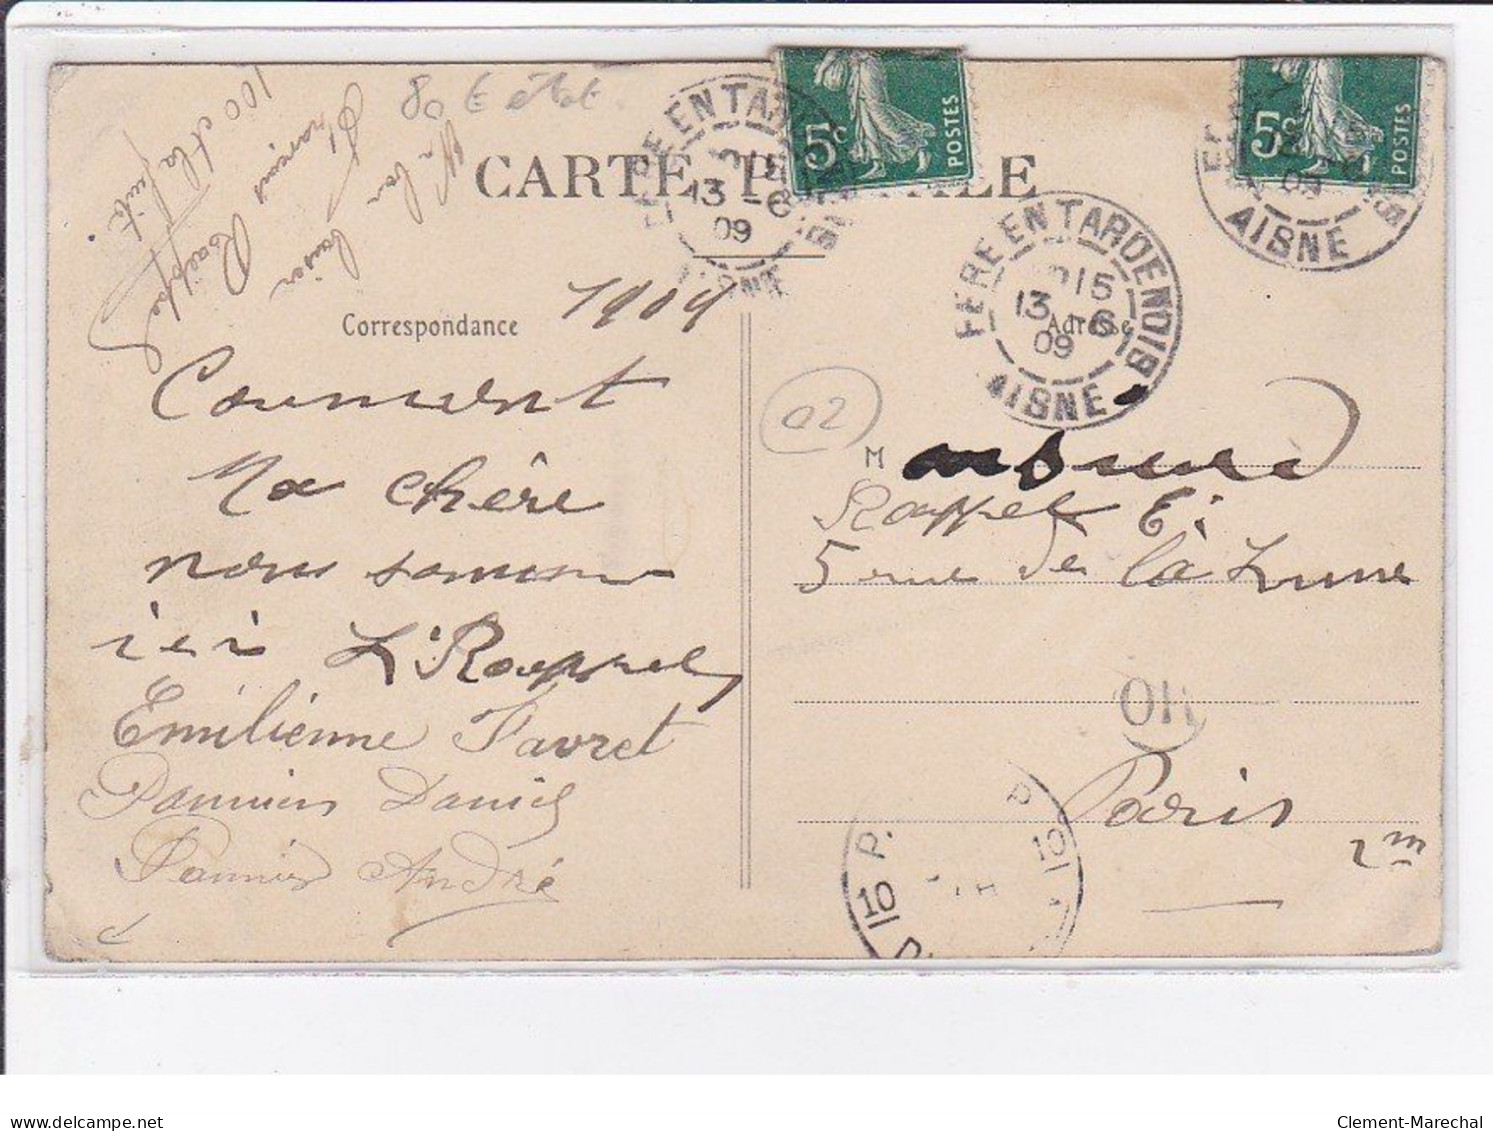 80 €
CARTE POSTALE
FERE EN TARDENOIS
13 -6
09
AISNE
5c
POSTES
5c
POSTES
AISNE
FERE EN TARDENOIS
15
13 -6
09
AISNE
Un bon baiser
François Rappel
100 de la suite
1909
Correspondance
Adresse
Comment
Ma chère
nous sommes
ici L. Rappel
Emilienne Favret
Pannier Daniel
Pannier André
02
M
Rappel E.
5 rue de la Lune
OR
Paris
2m
P. P.
10 10
delcampe.net
Clement-Marechal